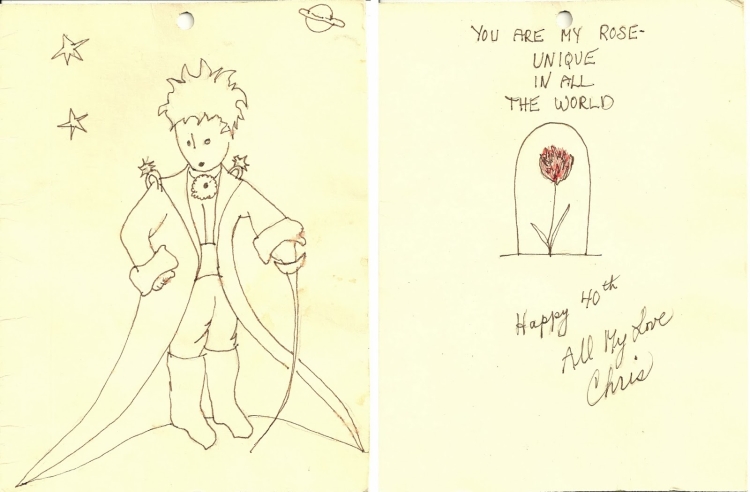 YOU ARE MY ROSE-
UNIQUE
IN ALL
THE WORLD
Happy 40th
All My Love
Chris